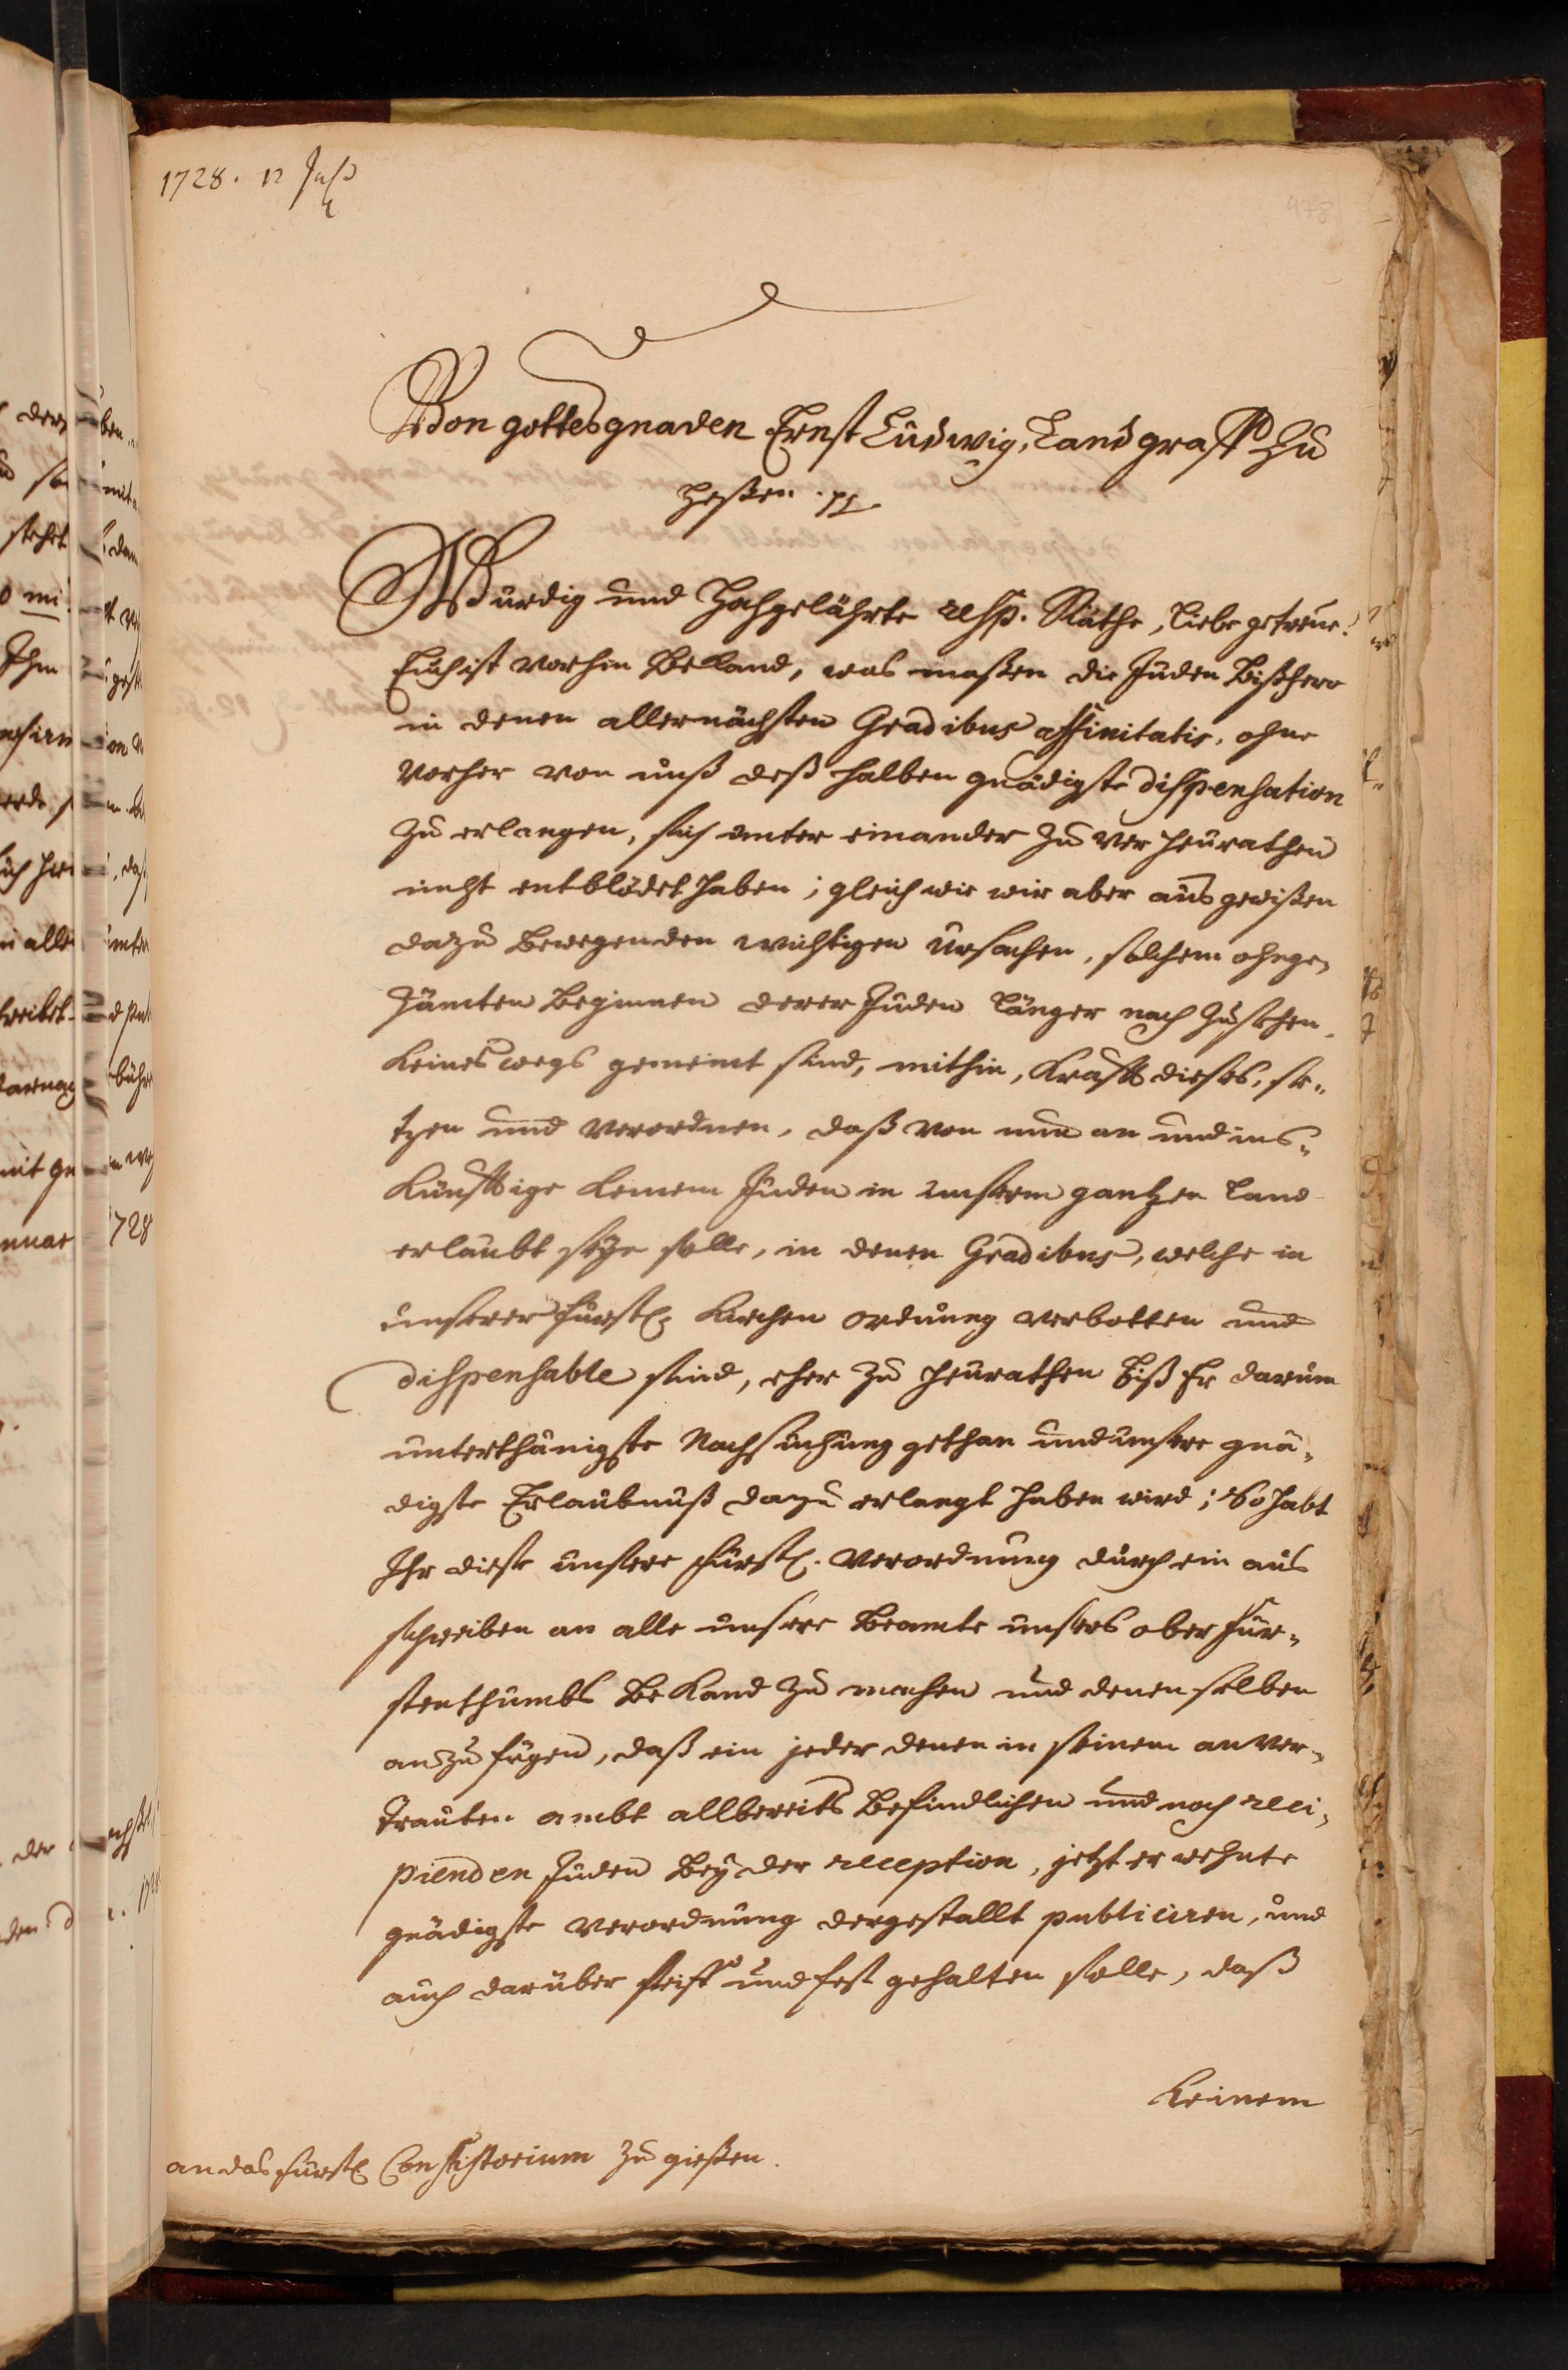 1728. 12 July
478
Von gottes gnaden Ernst Ludwig, Landgraff zu
Heßen. pp.
Würdig und Hochgelährte resp. Räthe, liebe getreue!
Euch ist vorhin bekand, was maßen die Juden bißhero
in denen allernächsten Gradibus affinitatis, ohne
vorher von unß deßhalben gnädigste dispensation
zu erlangen, sich unter einander zu verheurathen
nicht entblödet haben; gleich wie wir aber aus gewißen
dazu bewegenden wichtigen Ursachen, solchem ohnge„
zämten beginnen derer Juden länger nach zusehen,
keines wegs gemeint sind, mithin, krafft dieses, se„
tzen und verordnen, daß von nun an und ins„
künfftige keinem Juden in unserem gantzen Land
erlaubt seye solle, in denen Gradibus, welche in
unserer fürstl. kirchen ordnung verbotten und
dispensable sind, eher zu heurathen biß Er darum
unterthänigste Nachsuchung gethan und unsere gnä„
digste Erlaubnuß dazu erlangt haben wird; So habt
Ihr diese unsere fürstl. verordnung durch ein aus
schreiben an alle unsere Beamte unsers ober für„
stenthumbs bekand zu machen und denenselben
anzufügen, daß ein jeder denen in seinem anver„
trauten ambt allbereits befindlichen und noch reci„
pienden Juden bey der reception, jetzt erwehnte
gnädigste verordnung dergestallt publiciren, und
auch darüber steiff und fest gehalten solle, daß
keinem
an das fürstl. Consistorium zu gießen.